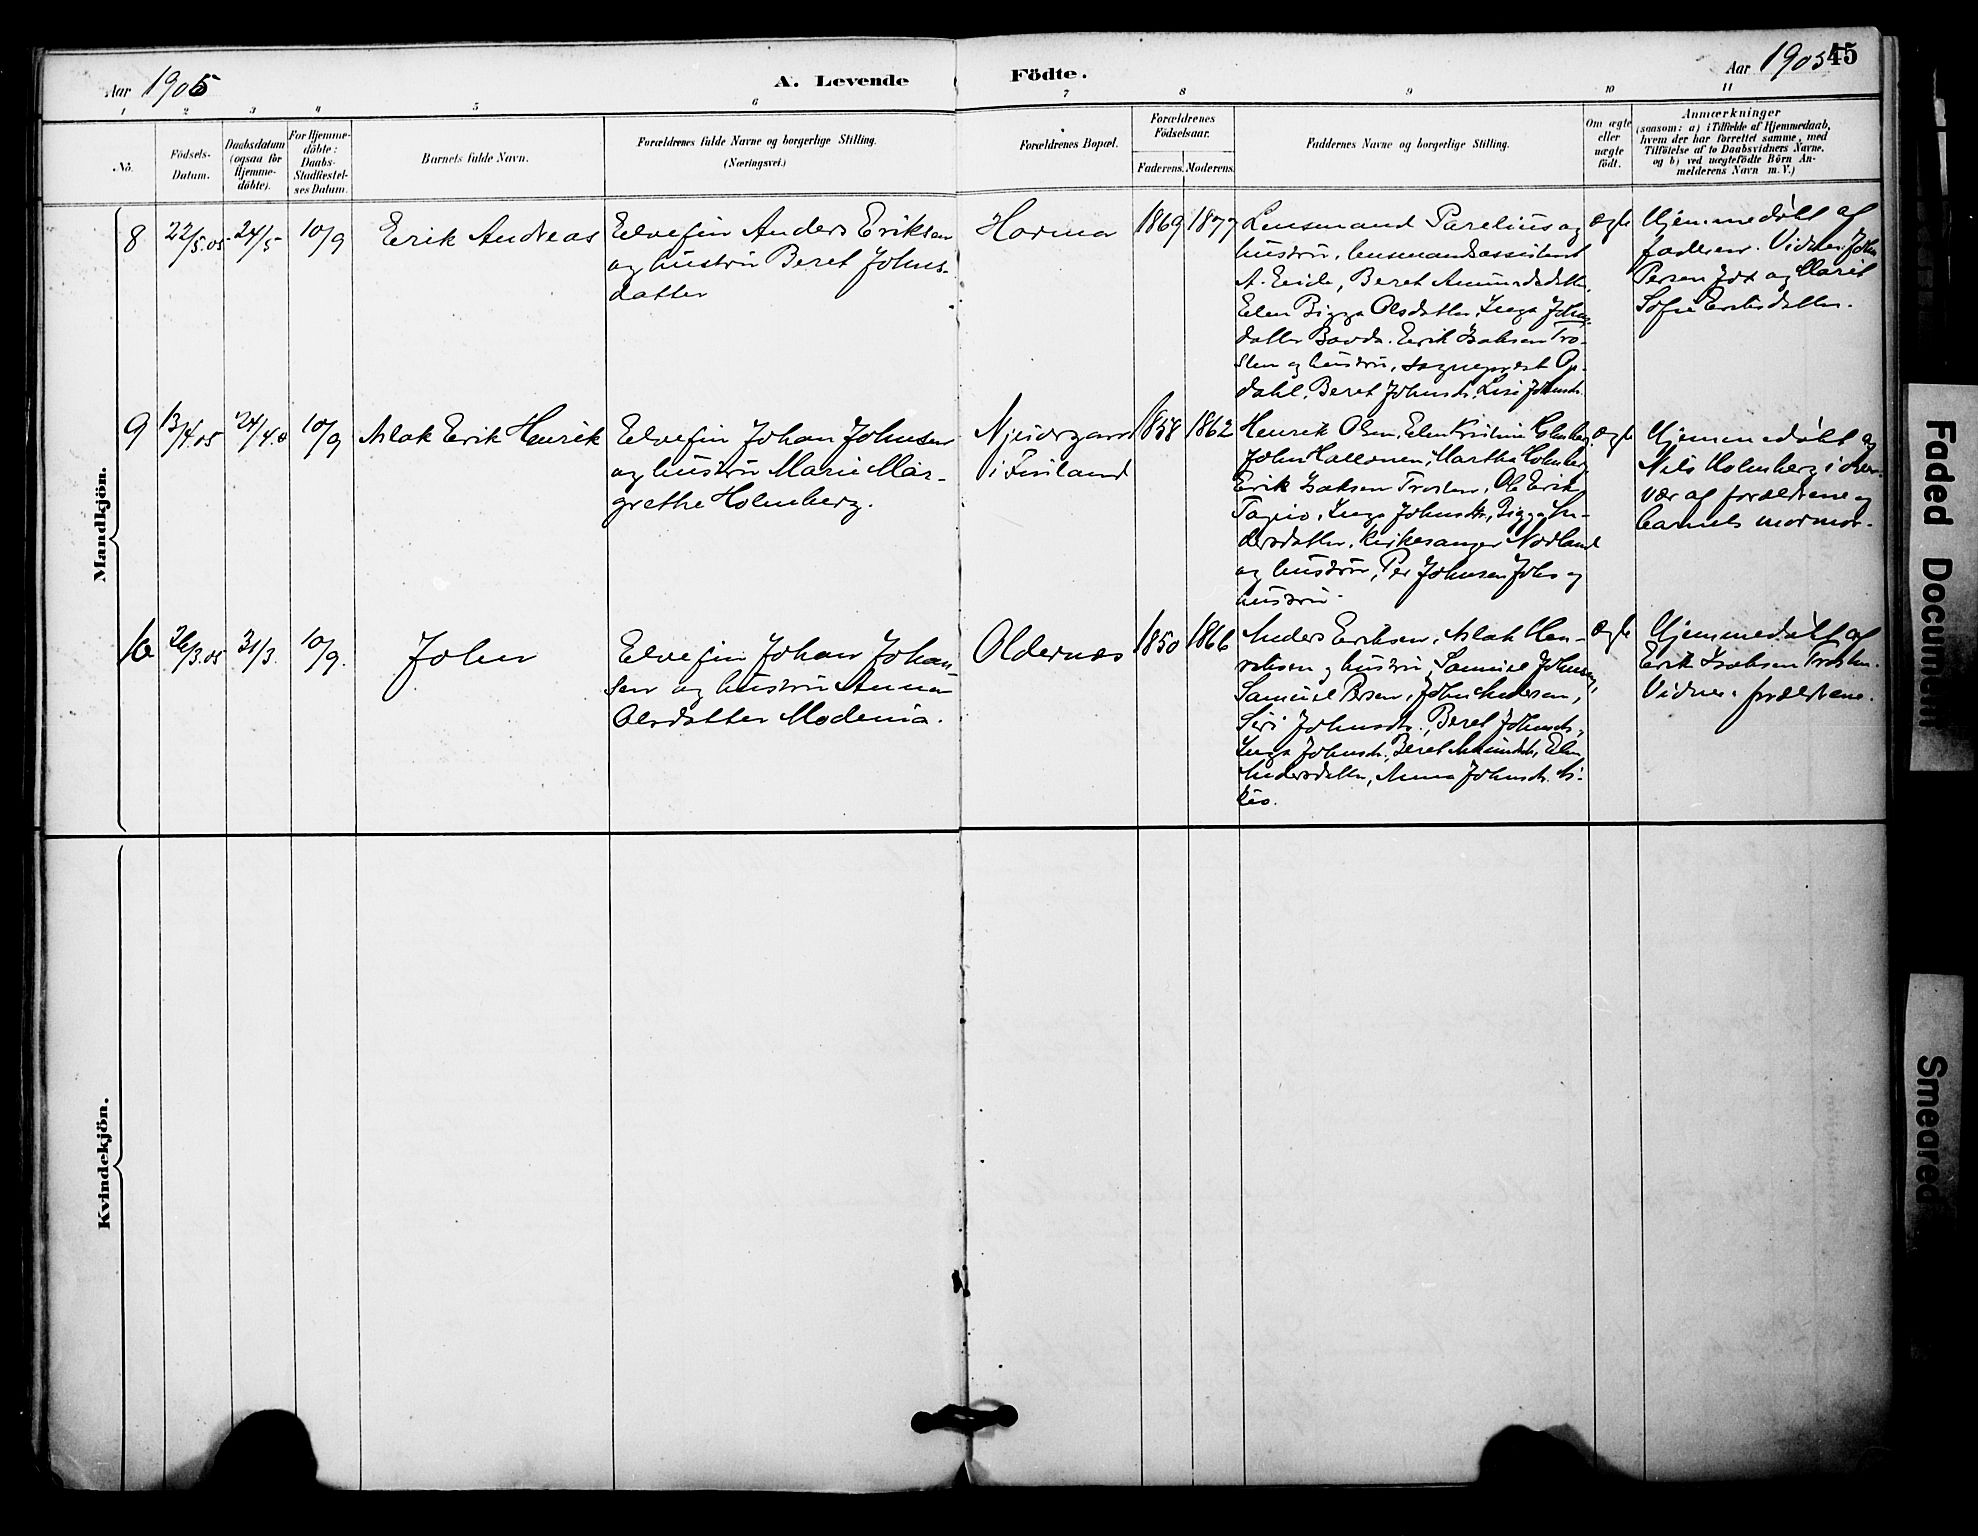 Aar 1905
A. Levende
Födte.
Aar 1905
45
1 2 3 4 5 6 7 8 9 10 11
No.
Födsels-
Datum.
Daabsdatum
(ogsaa for
Hjemme-
döbte).
For Hjemme-
döbte:
Daabs-
Stadfæstel-
ses Datum.
Barnets fulde Navn.
Forældrenes fulde Navne og borgerlige Stilling.
(Næringsvei.)
Forældrenes Bopæl.
Forældrenes
Födselsaar.
Faderens. Moderens.
Faddernes Navne og borgerlige Stilling.
Om ægte
eller
uægte
födt.
Anmærkninger
(saasom: a) i Tilfælde af Hjemmedaab,
hvem der har forrettet samme, med
Tilföielse af to Daabsvidners Navne.
og b) ved uægtefödte Börn An-
melderens Navn m. V.)
Mandkjön.
8
22/5.05
24/5
10/9
Erik Andreas
Elvefin Anders Eriksen
og hustru Beret Johns-
datter
Horma
1869
1877
Lensmand Parelius og
hustru, lensmandsassistent
A. Eide, Beret Amundsdatter,
Elen Bigga Olsdatter, Inga Johns-
datter Bavda. Erik Isaksen Tro-
sten og hustru, sogneprest Op-
dahl, Beret Johnsdtr. Lisi Johnsdtr.
ægte
Hjemmedøbt af
faderen. Vidner: John
Persen Jox og Marit
Sofie Eriksdatter.
9
13/4.05
24/4.
10/9
Aslak Erik Henrik
Elvefin Johan Johnsen
og hustru Marie Mar-
grethe Holmberg.
Njuorgam
i Finland
1858
1862
Henrik Olsen, Elen Kristine Holmberg
John Hallonen, Martha Holmberg
Erik Isaksen Trosten, Ole Erik.
Tapio, Inga Johnsdtr, Bigga An-
dersdatter, kirkesanger Nordland
og hustru, Per Johnsen Johs og
hustru.
ægte
Hjemmedøbt af
Nils Holmberg i nær-
vær af forældrene og
barnets mormor.
10
26/3.05
31/3.
10/9.
John
Elvefin Johan Johan-
sen og hustru Anna
Olsdatter Modenia.
Oldernæs
1850
1866
Anders Eriksen, Aslak Hen-
riksen og hustru, Samuel Johnsen,
Samuel Persen, John Andersen,
Siri Johnsdtr., Beret Johnsdtr,
Inga Johnsdtr. Beret Amundsdtr, Elen
Andersdatter, Anna Johnsdtr.
ægte
Hjemmedøbt af
Erik Isaksen Trosten.
Vidner: forældrene.
Kvindekjön.
Faded Document
Smeared